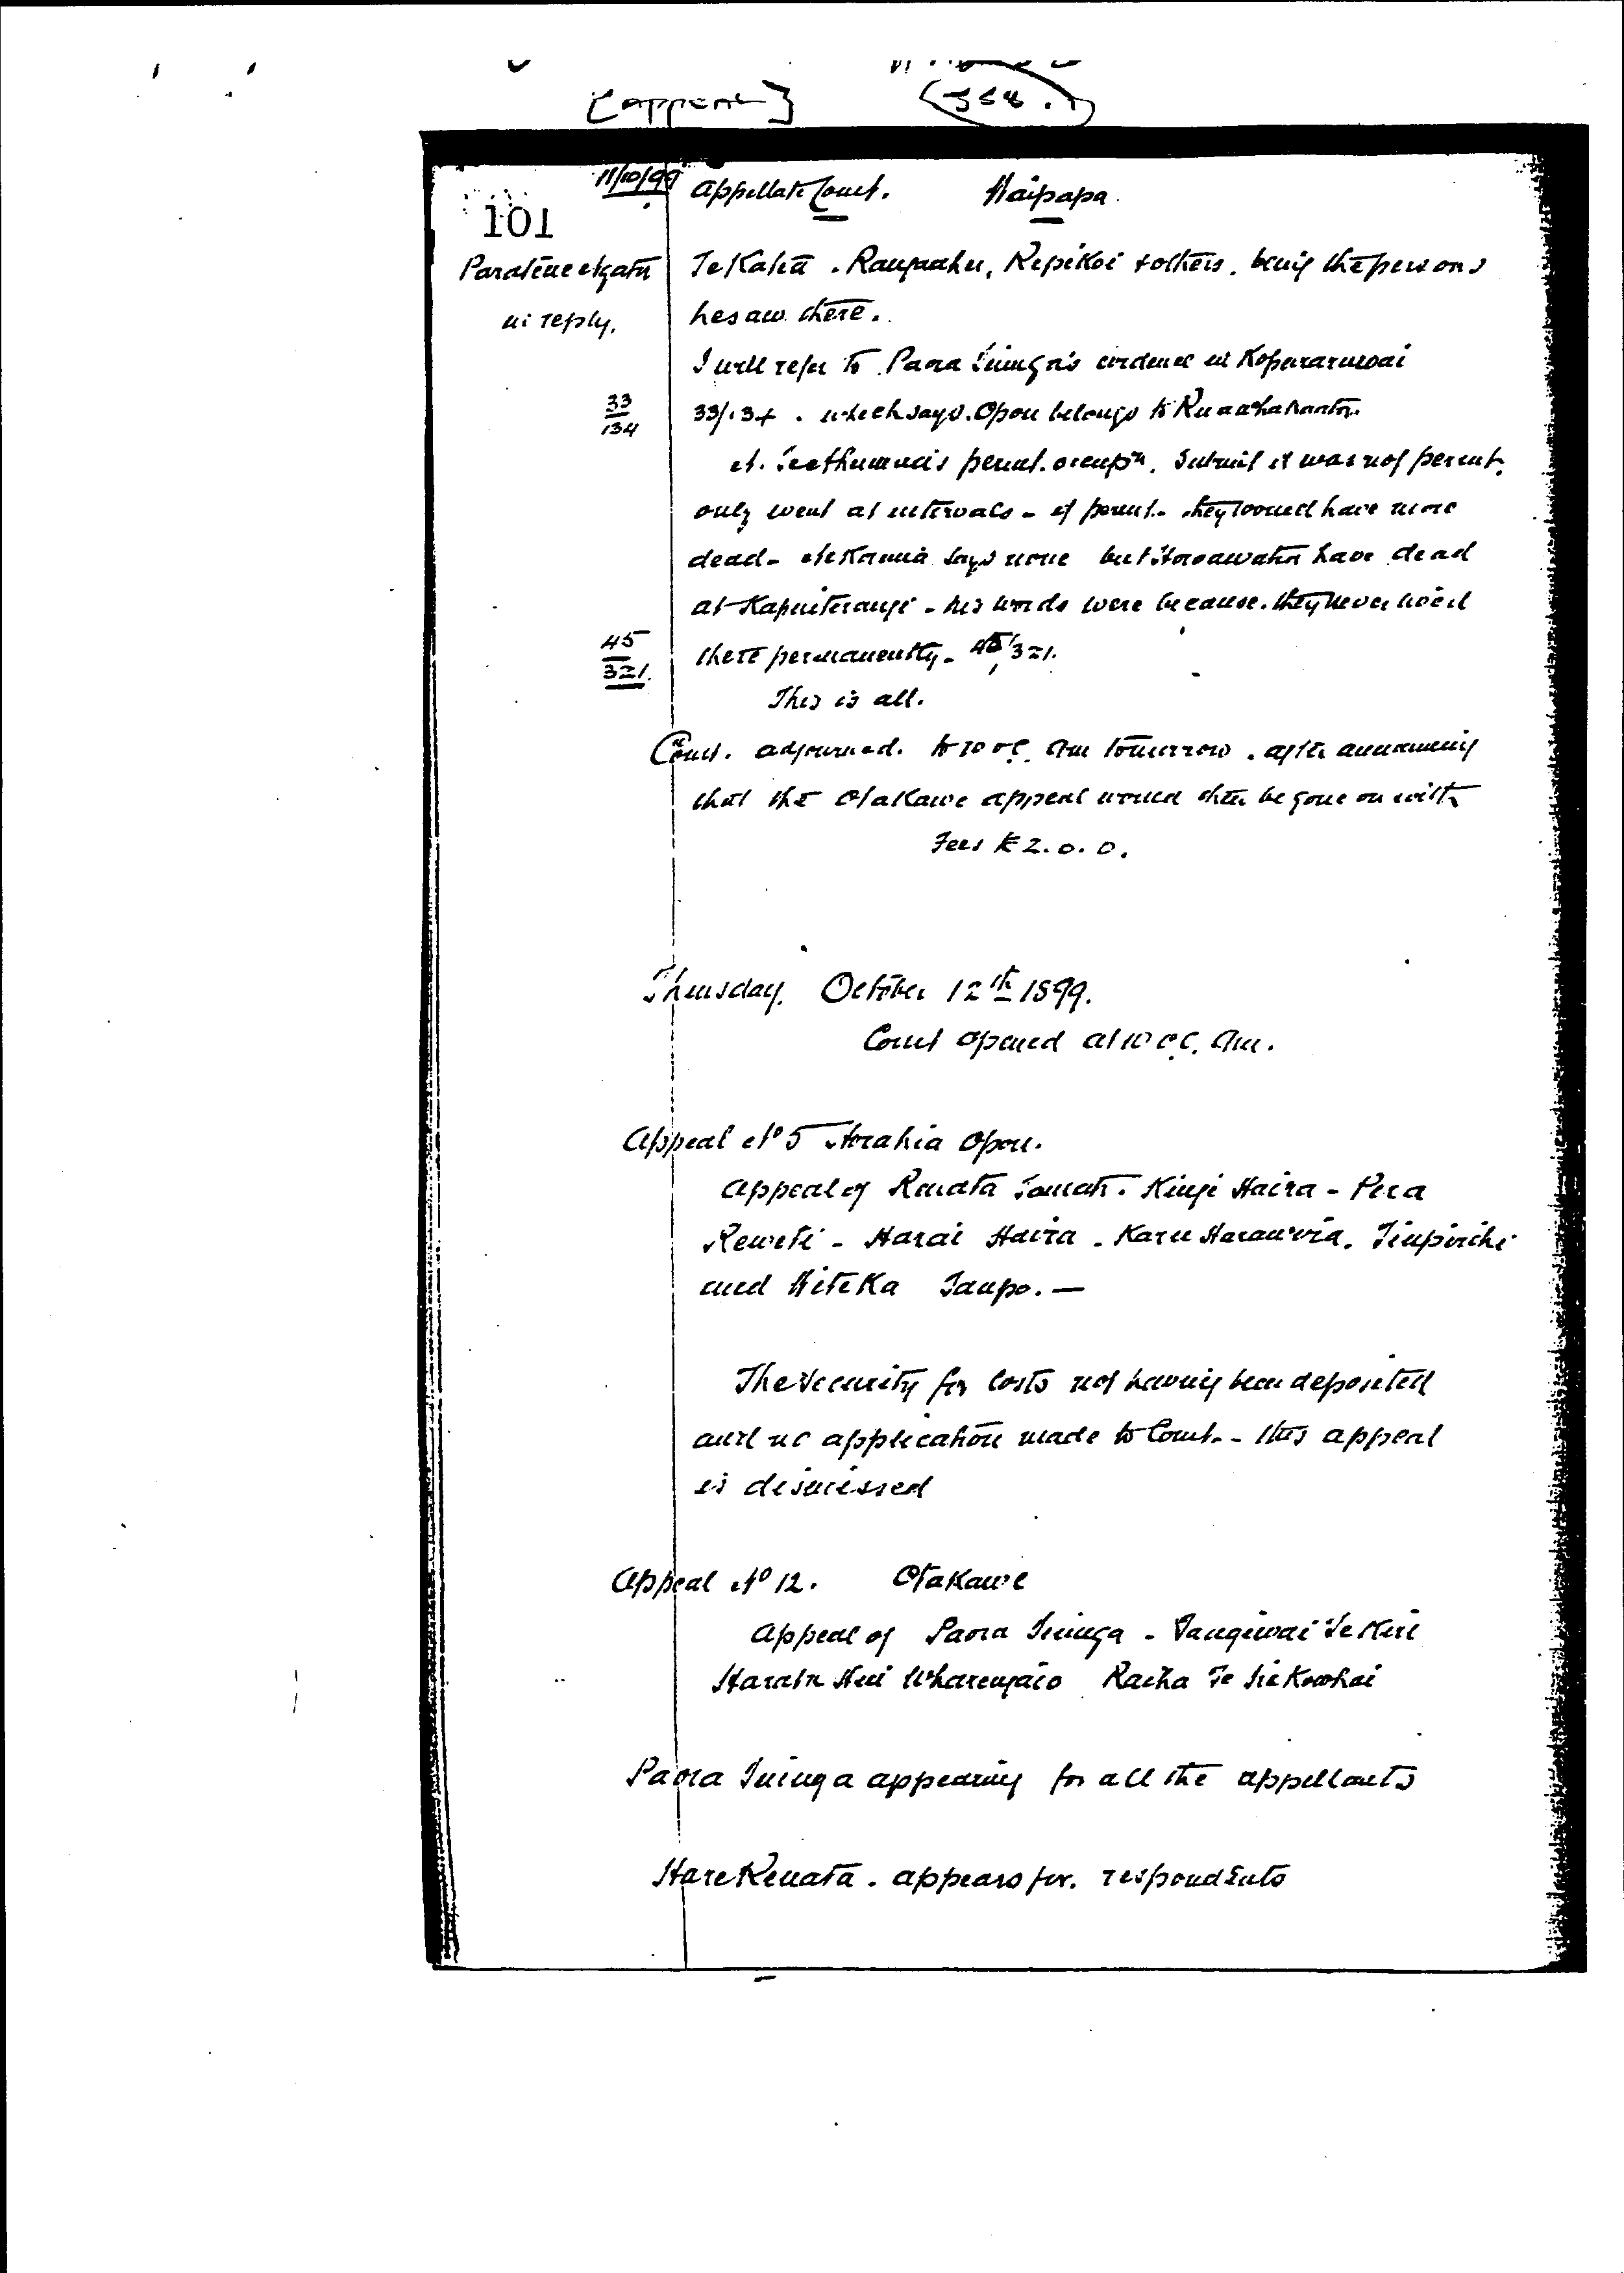 [Appeal]
11/10/99 Appellate Court. Waipapa.
101
Paratene Ngata Te Kahu. Rangaahu, Repikoi & others. being the persons
in reply. he saw there.
I will refer to Paora Tuinga's evidence in Kopuraruwai
33/134 33/134. which says. Opou belongs to
permt. occupn. Submit it was not permt.
only went at intervals - if permt. they would have more
dead - says none but have dead
at Kapuiterangi - his words were because they never lived
45/321. there permanently - 45/321.
This is all.
Court. adjourned. to 10 o'C. am tomorrow. after announcing
that the Otakawe appeal would then be gone on with
Fees £2.0.0.
Thursday. October 12th 1899.
Court opened at 10 o'C. Am.
Appeal No 5 Horahia Opou.
Appeal of Renata Tamati. Kingi Haira - Pera
Reweti - Harai Haira - Karu
and Witeka Taupo. —
The Security for Costs not having been deposited
and no application made to Court. - this appeal
is dismissed
Appeal No 12. Otakawe
Appeal of Paora Tuinga - Tangiwai Te Kiri
Haratu Hui Wharengaio Raiha Te Kowhai
Paora Tuinga appearing for all the appellants
Hare Renata. appears for. respondents